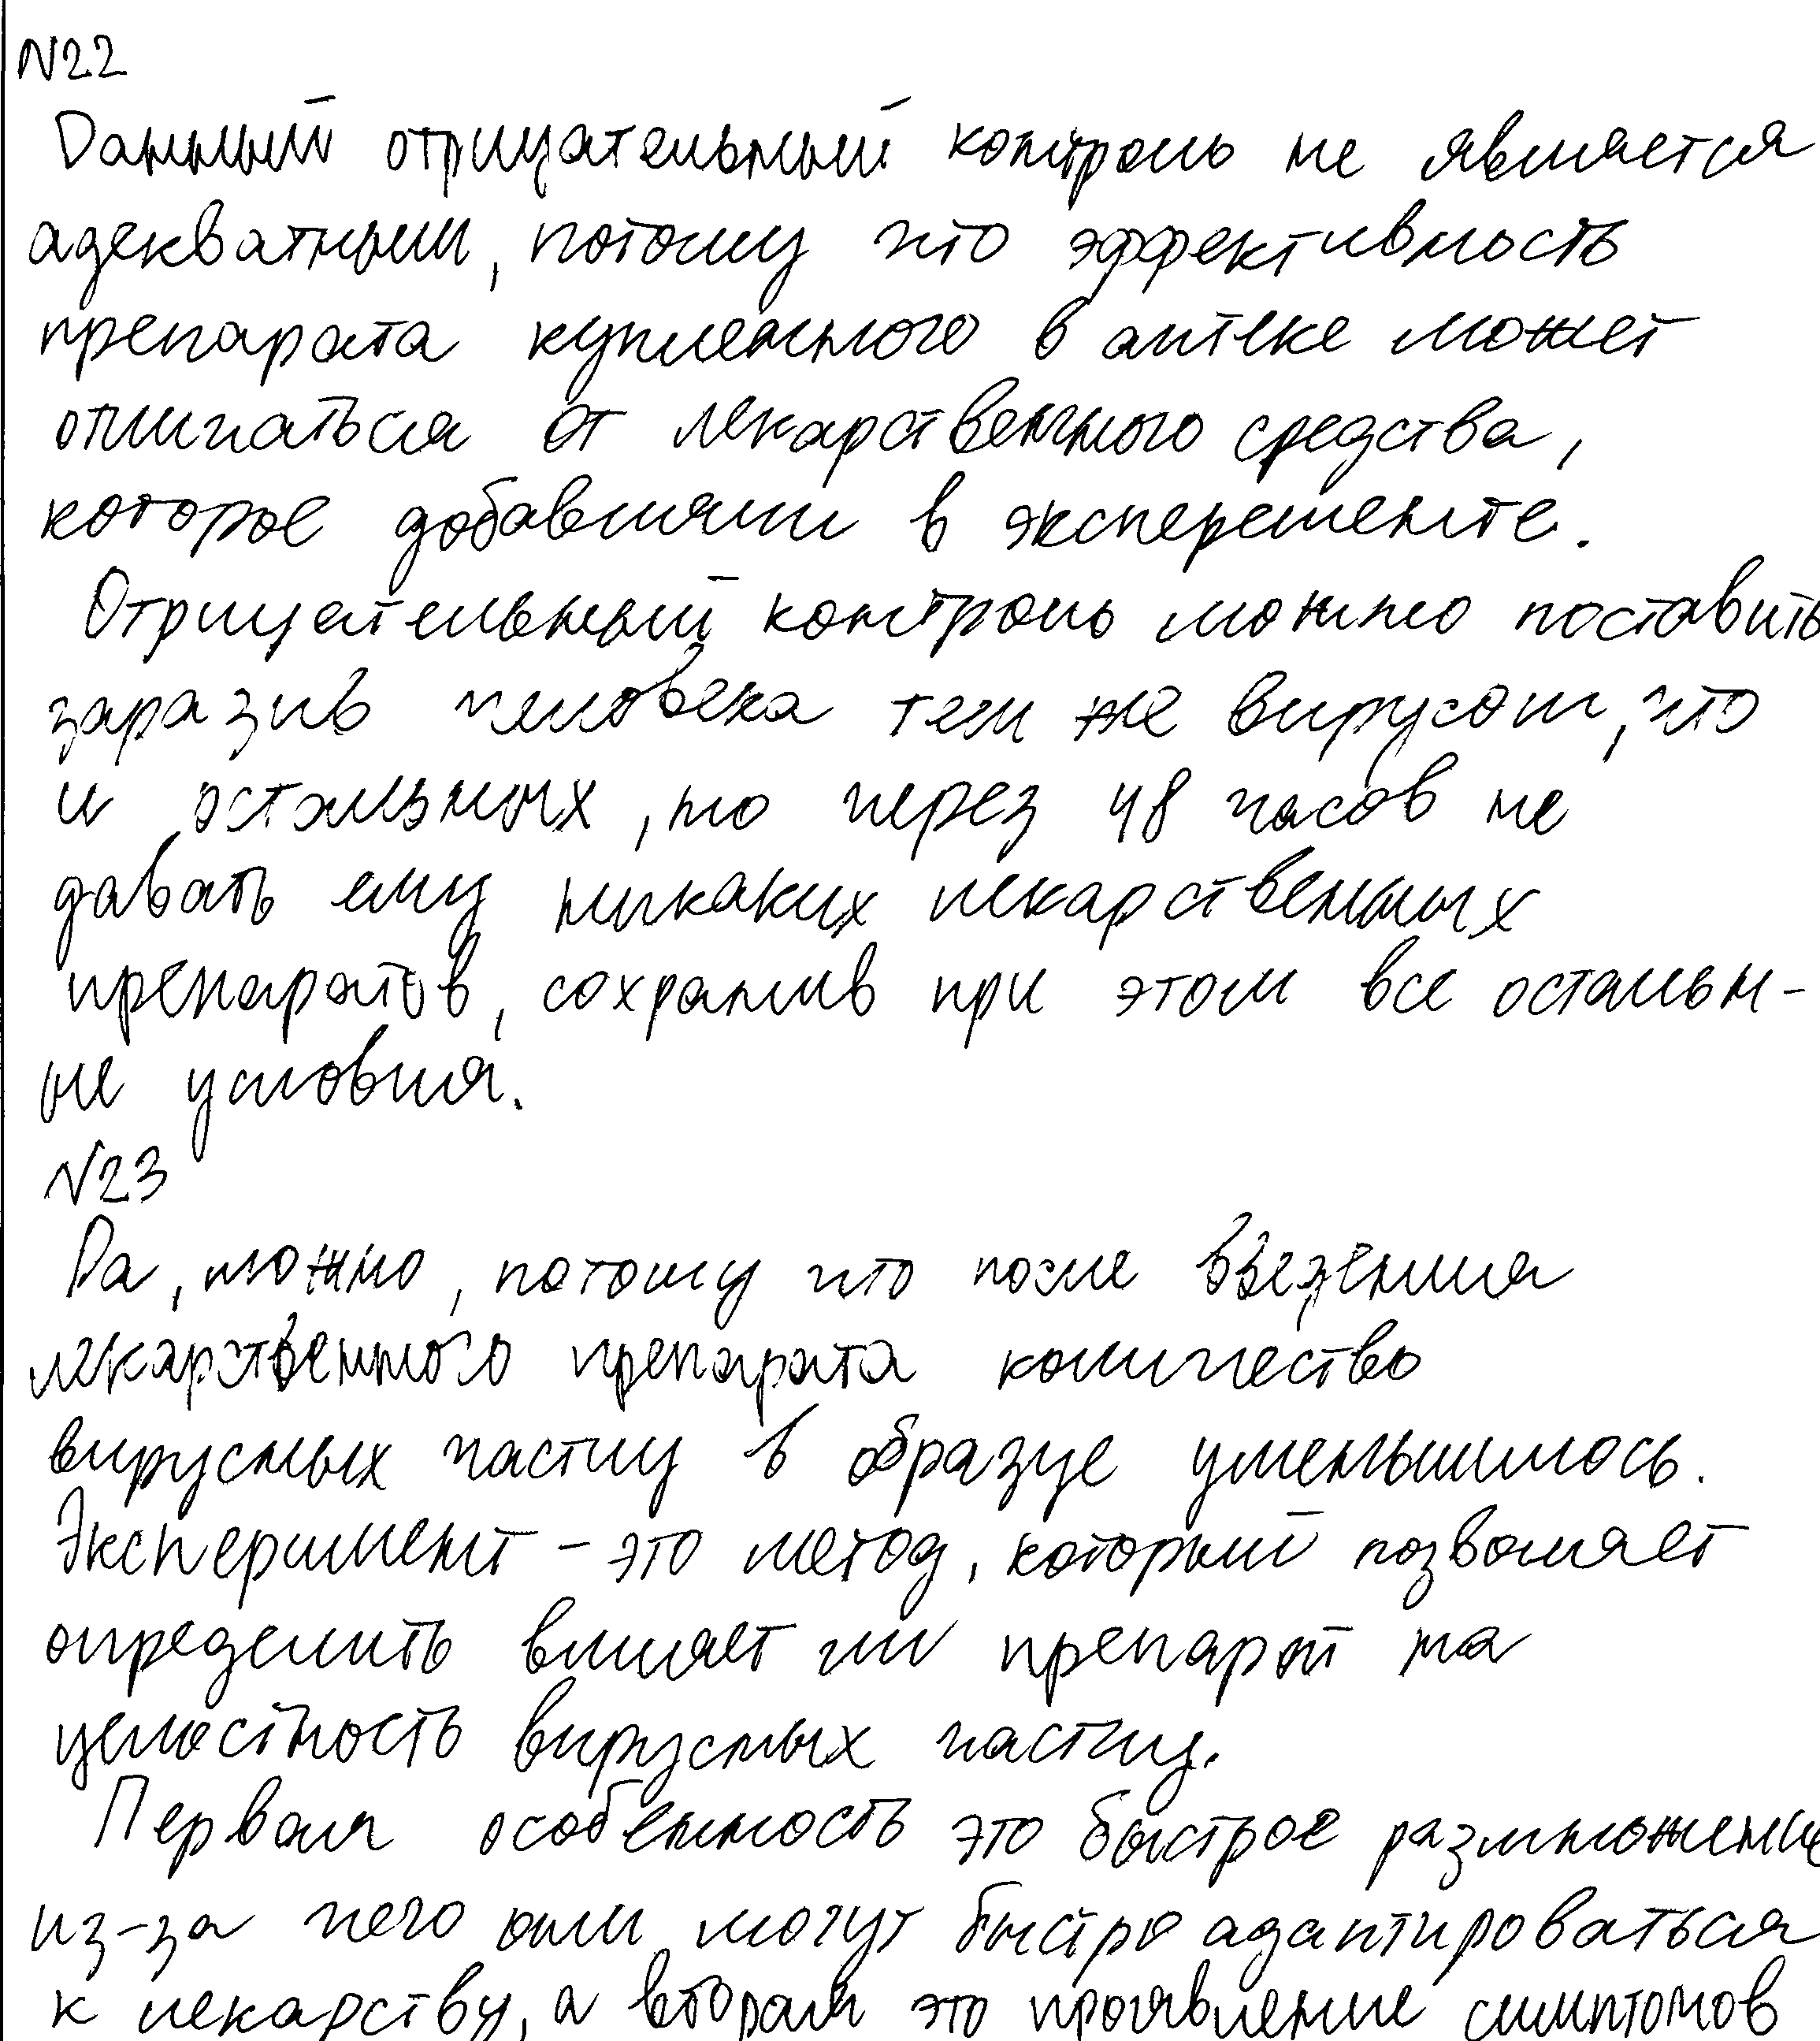 N22
Данный отрицательный контроль не является
адекватным, потому что эффективность
препарата купленного в аптеке может
отличаться от лекарственного средства,
которое добавляли в эксперементе.
Отрицательный контроль можно поставить
заразив человека тем же вирусом, что
и остальных, но через 48 часов не
давать ему никаких лекарственных
препаратов, сохранив при этом все остальн-
ые условия.
N23
Да, можно, потому что после введения
лекарственного препарата количество
вирусных частиц в образце уменьшилось.
Эксперимент - это метод, который позволяет
определить влияет ли препарат на
целостность вирусных частиц.
Первая особенность это быстрое размножение
из-за чего они могут быстро адаптироваться
к лекарству, а вторая это проявление симптомов